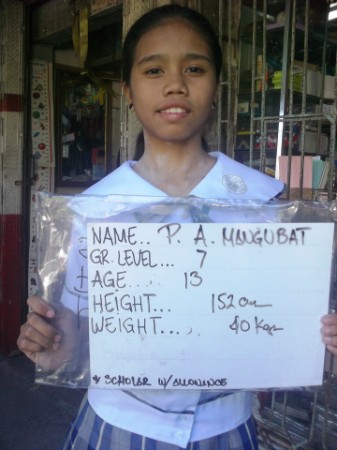 NAME.. P. A. MANGUBAT
GR. LEVEL... 7
AGE..... 13
HEIGHT... 152 cm
WEIGHT.... 40 Kgs
* SCHOLAR W/ ALLOWANCE